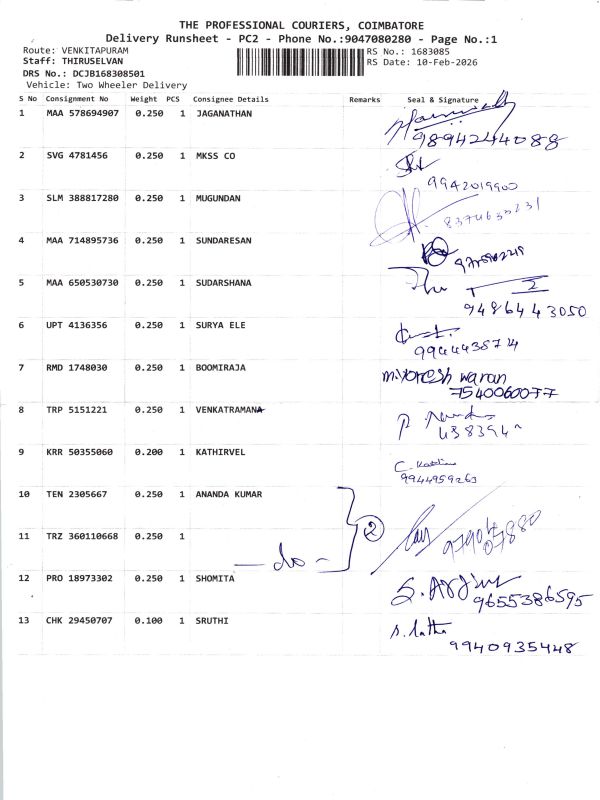 THE PROFESSIONAL COURIERS, COIMBATORE
Delivery Runsheet - PC2 - Phone No.:9047080280 - Page No.:1
Route: VENKITAPURAM
Staff: THIRUSELVAN
DRS No.: DCJB168308501
Vehicle: Two Wheeler Delivery
RS No.: 1683085
RS Date: 10-Feb-2026
S No Consignment No Weight PCS Consignee Details Remarks Seal & Signature
1 MAA 578694907 0.250 1 JAGANATHAN
9894244088
2 SVG 4781456 0.250 1 MKSS CO
9942019900
3 SLM 388817280 0.250 1 MUGUNDAN
4 MAA 714895736 0.250 1 SUNDARESAN
5 MAA 650530730 0.250 1 SUDARSHANA
9486443050
6 UPT 4136356 0.250 1 SURYA ELE
9944438714
7 RMD 1748030 0.250 1 BOOMIRAJA
7540060077
8 TRP 5151221 0.250 1 VENKATRAMANA
9 KRR 50355060 0.200 1 KATHIRVEL
9944959263
10 TEN 2305667 0.250 1 ANANDA KUMAR
11 TRZ 360110668 0.250 1
- do - 2
9790407880
12 PRO 18973302 0.250 1 SHOMITA
S. Arjun
9655386595
13 CHK 29450707 0.100 1 SRUTHI
S. Latha
9940935448